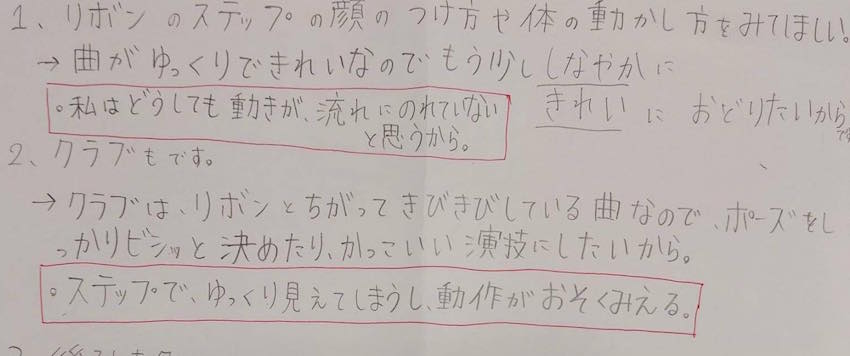 1、リボンのステップの顔のつけ方や体の動かし方をみてほしい。
→曲がゆっくりできれいなのでもう少ししなやかに
きれいにおどりたいからです
。私はどうしても動きが、流れにのれていない
と思うから。
2、クラブもです。
→クラブは、リボンとちがってきびきびしている曲なので、ポーズをし
っかりビシッと決めたり、かっこいい演技にしたいから。
。ステップで、ゆっくり見えてしまうし、動作がおそくみえる。